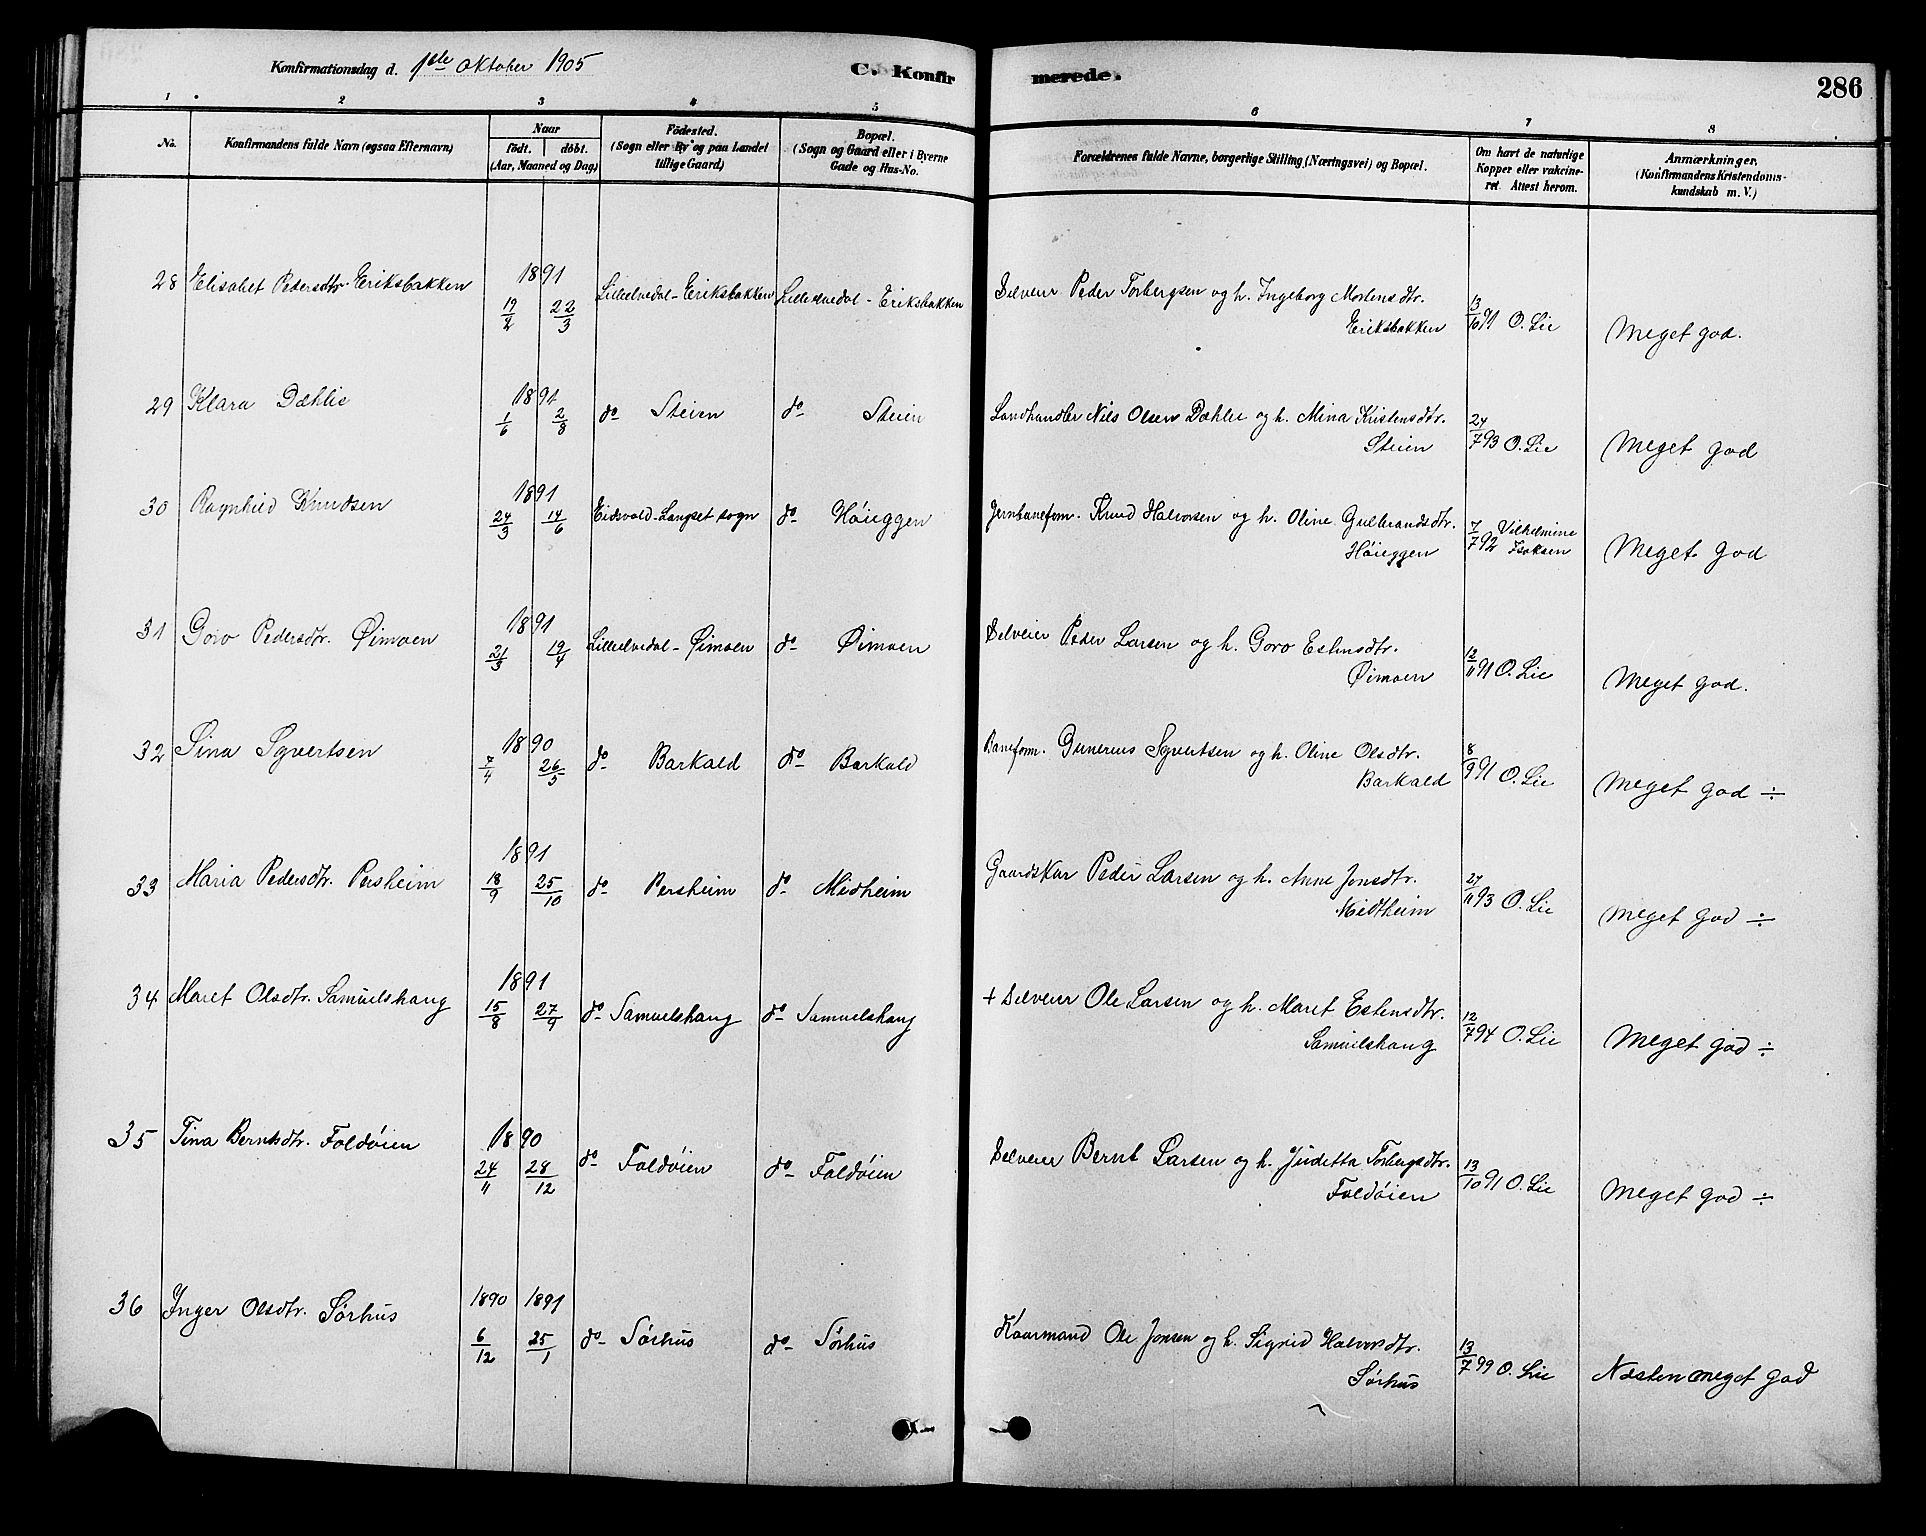 Konfirmationsdag d. 1ste Oktober 1905 C. Konfirmerede. 286
1 2 3 4 5 6 7 8
No. Konfirmandens fulde Navn (ogsaa Efternavn) Naar födt. döbt. (Aar, Maaned og Dag) Födested. (Sogn eller By og paa Landet tillige Gaard) Bopæl. (Sogn og Gaard eller i Byerne Gade og Hus-No. Forældrenes fulde Navne, borgerlige Stilling (Næringsvei) og Bopæl. Om havt de naturlige Kopper eller vakcineret. Attest herom. Anmærkninger. (Konfirmandens Kristendomskundskab m. V.)
28 Elisabet Pedersdtr. Eriksbakken 1891 19/2 22/3 Lilleelvedal-Eriksbakken Lilleelvedal-Eriksbakken Selveier Peder Torbergsen og h. Ingeborg Mortensdtr. Eriksbakken 13/10 91 O. Lie Meget god.
29 Klara Dæhlie 1891 1/6 2/8 do Steien do Steien Landhandler Nils Olsen Dæhlie og h. Mina Kristensdtr. Steien 24/7 93 O. Lie Meget god
30 Ragnhild Knudsen 1891 24/3 14/6 Eidsvold-Langset sogn do Höieggen Jernbanefom. Knud Halvorsen og h. Oline Gulbrandsdtr. Höieggen 7/7 92 Vilhelmine Isaksen Meget god
31 Goro Pedersdtr. Øimoen 1891 21/3 19/4 Lilleelvedal-Øimoen do Øimoen Selveier Peder Larsen og h. Goro Estensdtr. Øimoen 12/11 91 O. Lie Meget god.
32 Sina Syvertsen 1890 7/4 26/5 do Barkald do Barkald Banefom. Gunerius Syvertsen og h. Oline Olsdtr. Barkald 8/9 91 O. Lie Meget god ÷
33 Maria Pedersdtr. Persheim 1891 18/9 25/10 do Persheim do Midheim Gaardskar Peder Larsen og h. Anne Jonsdtr. Midtheim 27/11 93 O. Lie Meget god ÷
34 Maret Olsdtr. Samuelshaug 1891 15/8 27/9 do Samuelshaug do Samuelshaug + Selveier Ole Larsen og h. Maret Estensdtr. Samuelshaug 12/7 94 O. Lie Meget god ÷
35 Tina Berntsdtr. Foldöien 1890 24/11 28/12 do Foldöien do Foldöien Selveier Bernt Larsen og h. Juditta Torbergsdtr. Foldöien 13/10 91 O. Lie Meget god ÷
36 Inger Olsdtr. Sörhus 1890 6/12 1891 25/1 do Sörhus do Sörhus Kaarmand Ole Jonsen og h. Sigrid Halvorsdtr. Sörhus 13/7 99 O. Lie Næsten meget god